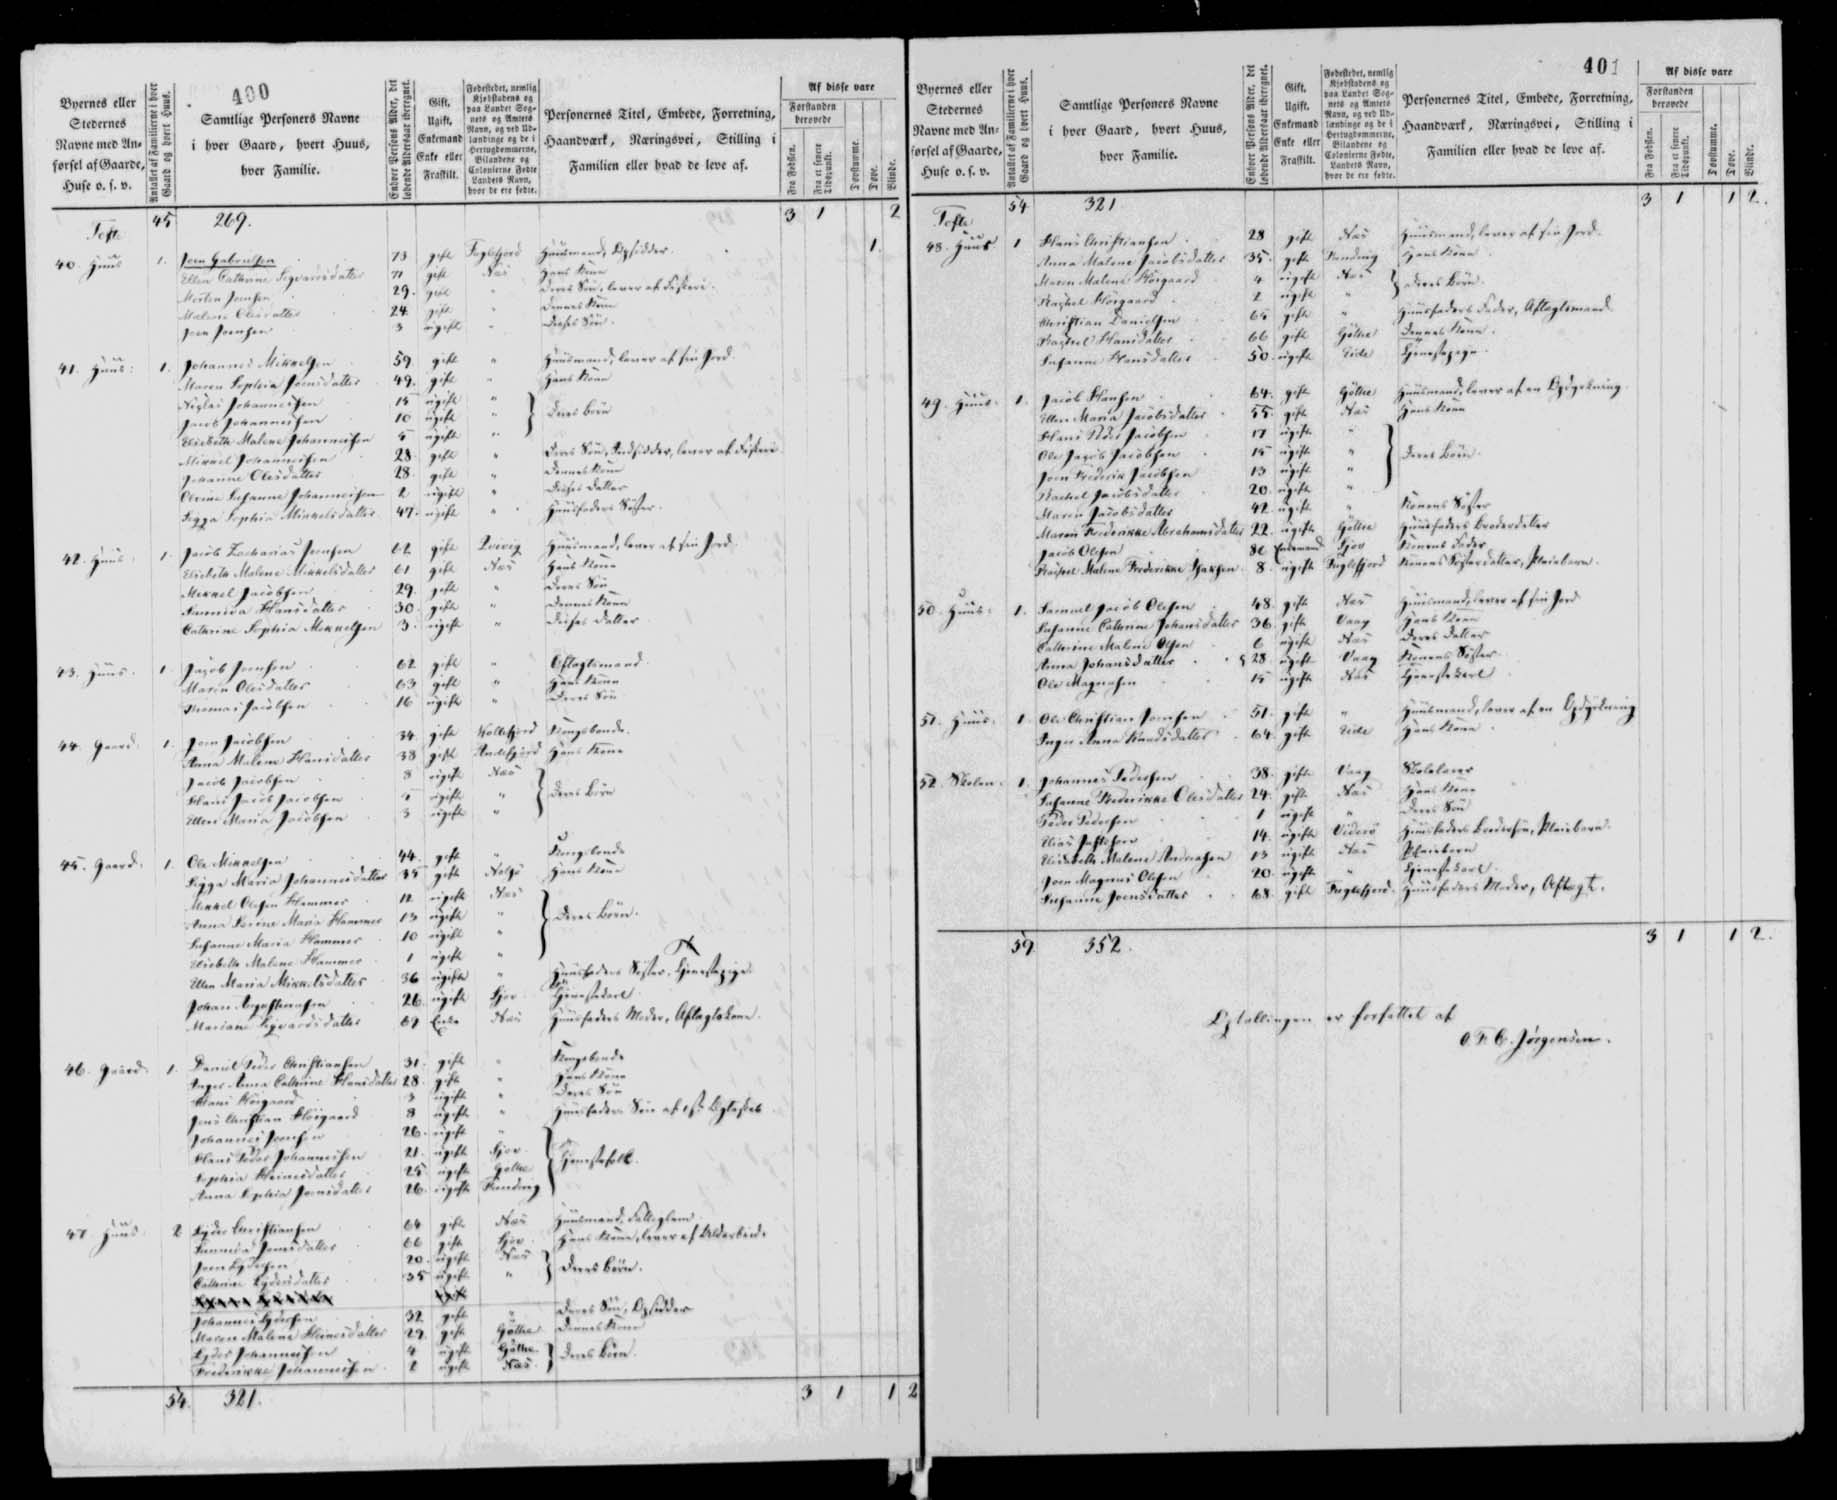 400
Byernes eller Stedernes Navne med Anførsel af Gaarde, Huse o. s. v.
Antallet af Familierne i hver Gaard og hvert Huus.
Samtlige Personers Navne i hver Gaard, hvert Huus, hver Familie.
Enhver Persons Alder, det løbende Aldersaar iberegnet.
Gift, Ugift, Enkemand Enke eller Fraskilt.
Fødestedet, nemlig Kjøbstadens og paa Landet Sognets og Amtets Navn, og ved Udlændinge og de i Hertugdømmerne, Bilandene og Colonierne Fødte Landets Navn, hvor de ere fødte.
Personernes Titel, Embede, Forretning, Haandværk, Næringsvei, Stilling i Familien eller hvad de leve af.
Af disse vare
Forstanden berøvede
Fra Fødslen.
Fra et senere Tidspunkt.
Døvstumme.
Døve.
Blinde.
Tofte 45 269. 3 1 2
40. Huus 1. Joen Gabrielsen 73 gift Fuglefjord Huusmand, 1.
Ellen Cathrine Sigvardsdatter 71 gift Næs Hans Kone
Morten Joensen 29. gift " Deres Søn, lever af Fiskeri.
Malene Olesdatter 24 gift " Dennes Kone
Joen Joensen 3 ugift " Deres Søn.
41. Huus: 1. Johannes Mikkelsen 59. gift " Huusmand, lever af sin Jord.
Maren Sophia Joensdatter 49. gift " Hans Kone
Johannesen 15 ugift " Deres Børn
Jacob Johannesen 10 ugift "
Elisbeth Malene Johannesen 5 ugift "
Mikkel Johannesen 28. gift " Deres Søn, Indsidder, lever af Fiskeri
Johanne Olesdatter 28. gift " Dennes Kone
Susanne Johannesen 2 ugift " Deres Datter
Sigga Sophia Mikkelsdatter 47. ugift " Huusfaders Søster.
42. Huus. 1. Jacob Zacharias Joensen 62 gift Qvivig Huusmand, lever af sin Jord.
Elisbeth Malene Mikkelsdatter 61 gift Næs Hans Kone
Mikkel Jacobsen 29. gift " Deres Søn
Sunneva Hansdatter 30. gift " Dennes Kone
Cathrine Sophia Mikkelsen 3. ugift " Deres Datter
43. Huus. 1. Jacob Joensen 62 gift " Aftægtsmand.
Maren Olesdatter 63 gift " Hans Kone
Thomas Jacobsen 16 ugift " Deres Søn
44. Gaard. 1. Joen Jacobsen 34. gift Kollefjord Kongsbonde.
Anna Malene Hansdatter 38 gift Andefjord Hans Kone
Jacob Jacobsen 8 ugift Næs Deres Børn
Hans Jacob Jacobsen 5 ugift "
Ellen Maria Jacobsen 3 ugift "
45. Gaard. 1. Ole Mikkelsen 44. gift " Kongsbonde
Sigga Maria Johannesdatter 35 gift Nolsø Hans Kone
Mikkel Olesen Hammer 12 ugift Næs Deres Børn.
Anna Maria Hammer 13 ugift "
Susanne Maria Hammer 10 ugift "
Elisbeth Malene Hammer 1 ugift "
Ellen Maria Mikkelsdatter 36 ugift " Huusfaders Søster, Tjenestepige.
Johan 26. ugift Gjov Tjenestekarl.
Mariane Sigvardsdatter 69 Enke Næs Huusfaders Moder, Aftægtskone.
46. Gaard. 1. Daniel Peder Christiansen 31. gift " Kongsbonde
Inger Anna Cathrine Hansdatter 28. gift " Hans Kone
Hans Hoigaard 3 ugift " Deres Søn
Jens Christian Hoigaard 8 ugift " Huusfaders Søn af 1ste Ægteskab
Johannes Joensen 26. ugift " Tjenestefolk.
Hans Peder Johannesen 21. ugift Gjov
Sophia Heinesdatter 25. ugift Göthe
Anna Sophia Joensdatter 26. ugift Funding
47 Huus. 2 Lyder Christiansen 64 gift Næs Huusmand, Fattiglem.
Sunneva Joensdatter 66 gift Gjov. Hans Kone, lever af Uldarbeide
Joen Lydersen 20. ugift Næs Deres Børn.
Cathrine Lydersdatter 35 ugift "
Johannes Lydersen 32 gift " Deres Søn, Indsidder
Maren Malene Heinesdatter 29. gift Göthe Dennes Kone
Lyder Johannesen 4 ugift Göthe Deres Børn.
Frederikke Johannesen. 2 ugift Næs.
54. 321. 3 1 1 2
401
Byernes eller Stedernes Navne med Anførsel af Gaarde, Huse o. s. v.
Antallet af Familierne i hver Gaard og hvert Huus.
Samtlige Personers Navne i hver Gaard, hvert Huus, hver Familie.
Enhver Persons Alder, det løbende Aldersaar iberegnet.
Gift, Ugift, Enkemand Enke eller Fraskilt.
Fødestedet, nemlig Kjøbstadens og paa Landet Sognets og Amtets Navn, og ved Udlændinge og de i Hertugdømmerne, Bilandene og Colonierne Fødte Landets Navn, hvor de ere fødte.
Personernes Titel, Embede, Forretning, Haandværk, Næringsvei, Stilling i Familien eller hvad de leve af.
Af disse vare
Forstanden berøvede
Fra Fødslen.
Fra et senere Tidspunkt.
Døvstumme.
Døve.
Blinde.
Tofte 54 321 3 1 1 2.
48. Huus. 1 Hans Christiansen 28 gift Næs Huusmand, lever af sin Jord.
Anna Malene Jacobsdatter 35. gift Funding Hans Kone.
Maren Malene Hoigaard 4 ugift Næs Deres Børn.
Rachel Hoigaard 2 ugift "
Christian Danielsen 65 gift " Huusfaders Fader, Aftægtsmand
Rachel Hansdatter 66 gift Göthe Dennes Kone.
Susanne Hansdatter 50. ugift Eide Tjenestepige.
49. Huus. 1. Jacob Hansen 64. gift Göthe Huusmand, lever af en Opdyrkning.
Ellen Maria Jacobsdatter 55. gift Næs Hans Kone
Hans Peder Jacobsen 17 ugift " Deres Børn.
Ole Jacob Jacobsen 15 ugift "
Joen Frederik Jacobsen 13 ugift "
Rachel Jacobsdatter 20. ugift "
Maren Jacobsdatter 42 ugift " Konens Søster
Maren Frederikke Abrahamsdatter 22. ugift Göthe Huusfaders Broderdatter
Jacob Olesen 80 Enkemand Gjov Konens Fader
Rachel Malene Frederikke Isaksen 8. ugift Fuglefjord Konens Søsterdatter, Pleiebarn.
50. Huus. 1. Samuel Jacob Olesen 48. gift Næs Huusmand, lever af sin Jord
Susanne Cathrine Johansdatter 36. gift Vaag Hans Kone
Cathrine Malene Olsen 6 ugift Næs Deres Datter
Anna Johansdatter 28. ugift Vaag Konens Søster.
Ole Magnusen 15 ugift Næs Tjenestekarl.
51. Huus. 1. Ole Christian Joensen 51. gift " Huusmand, lever af en Opdyrkning
Inger Anna Knudsdatter 64. gift Eide Hans Kone.
52. Skolen. 1. Johannes Pedersen 38. gift Vaag Skolelærer
Susanne Frederikke Olesdatter 24. gift Næs Hans Kone
Peder Pedersen 1 ugift " Deres Søn
Elias 14. ugift Viderö Huusfaders Brodersøn, Pleiebarn.
Elisabeth Malene Andreasen 13 ugift Næs Pleiebarn
Joen Magnus Olsen 20. ugift " Tjenestekarl.
Susanne Joensdatter 68. gift Fuglefjord. Huusfaders Moder, Aftægt.
59 352. 3 1 1 2.
Optællingen er forfattet af
O. F. C. Jørgensen.